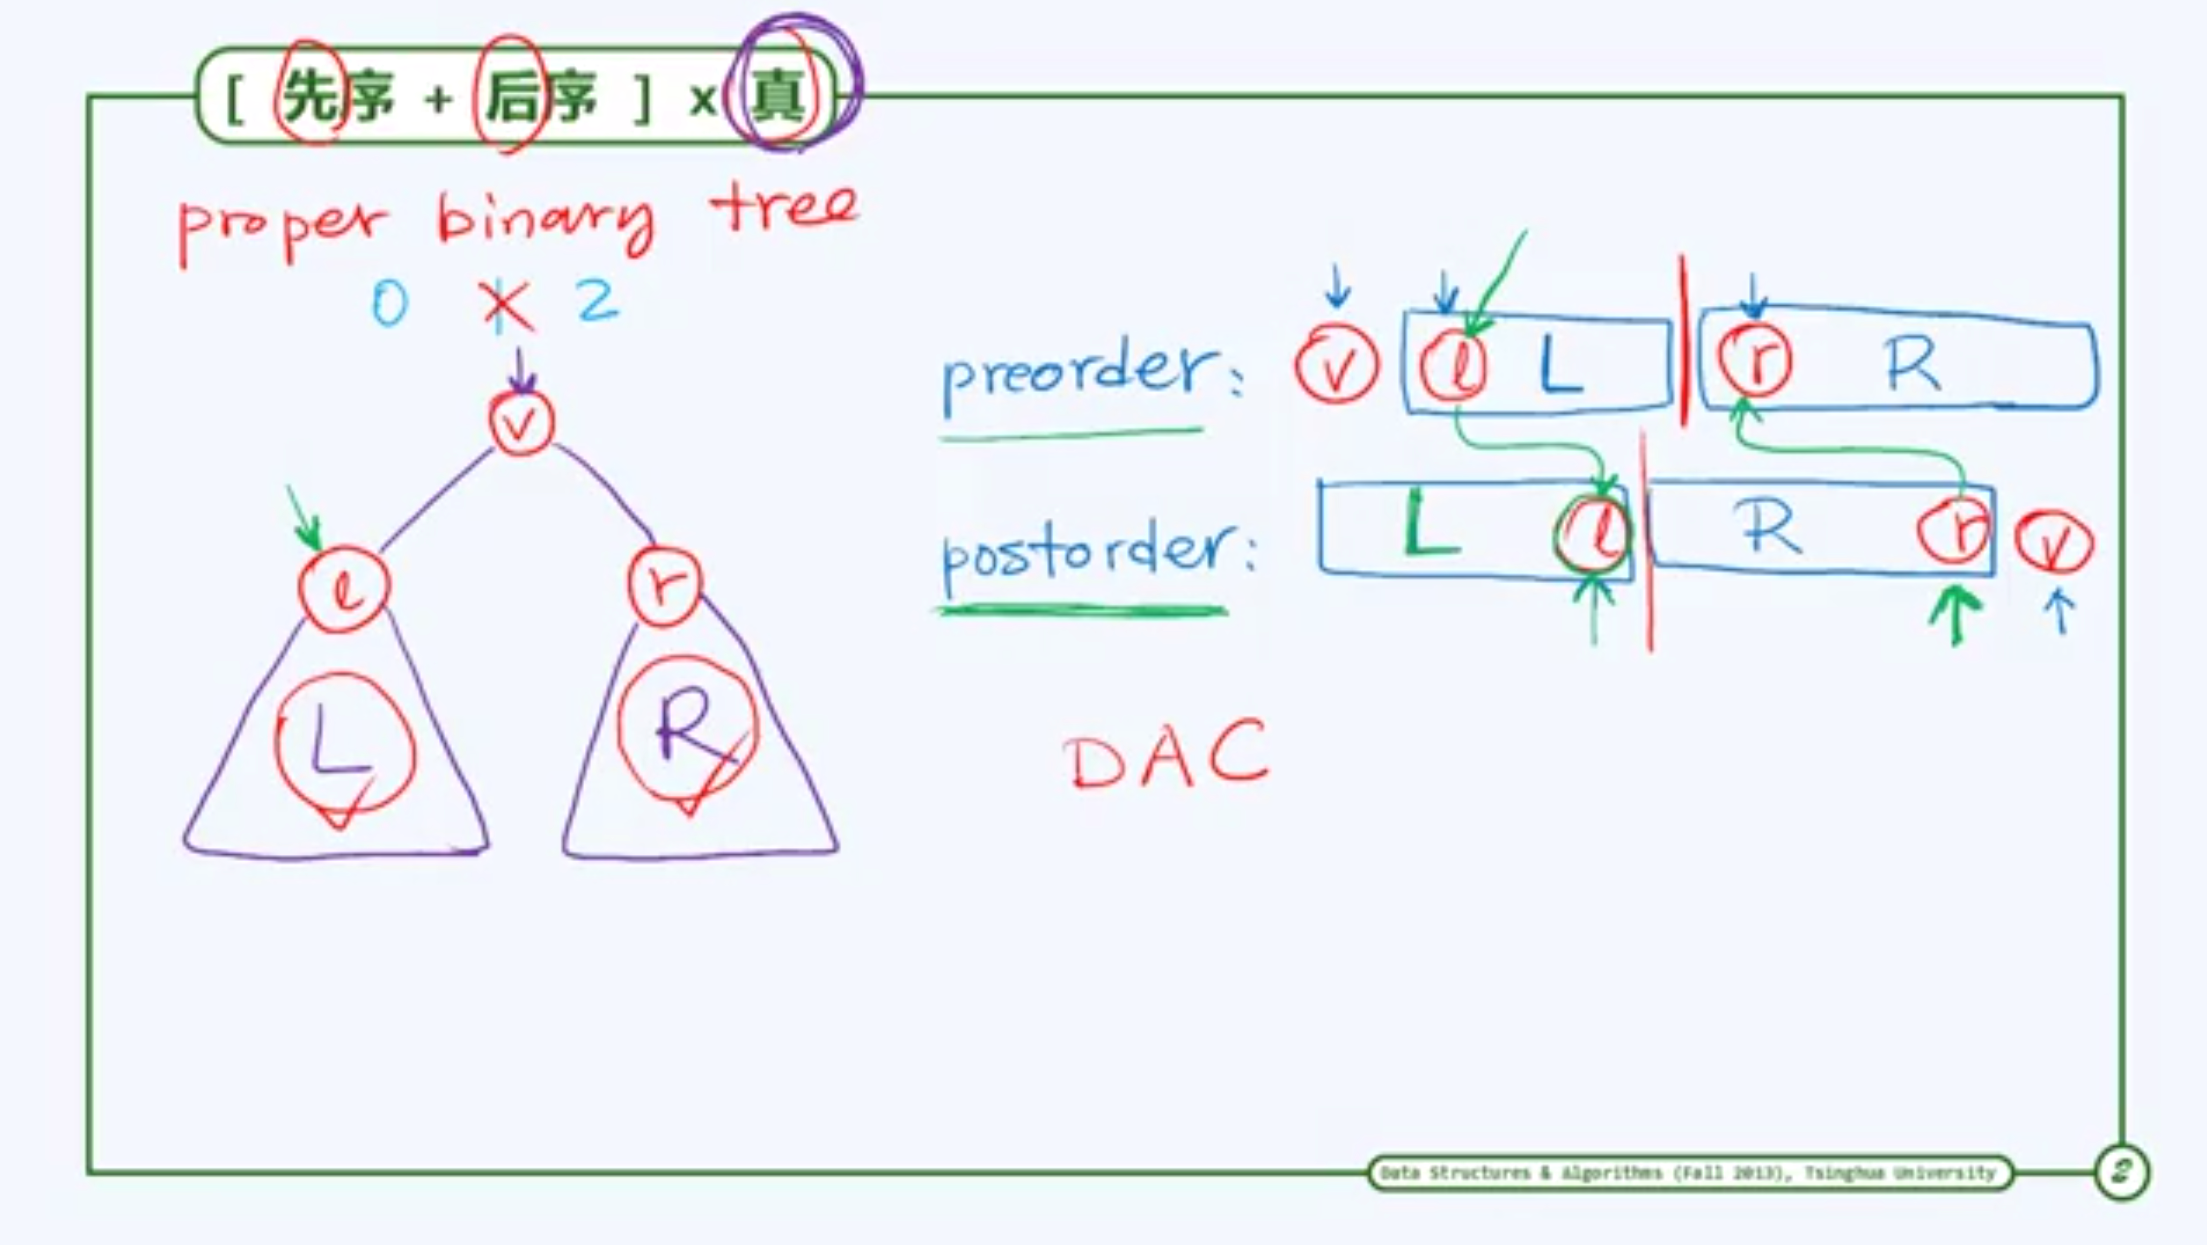 [ 先序 + 后序 ] x 真
proper binary tree
0 1 2
v
l r
L R
preorder: v l L r R
postorder: L l R r v
DAC
Data Structures & Algorithms (Fall 2013), Tsinghua University
2